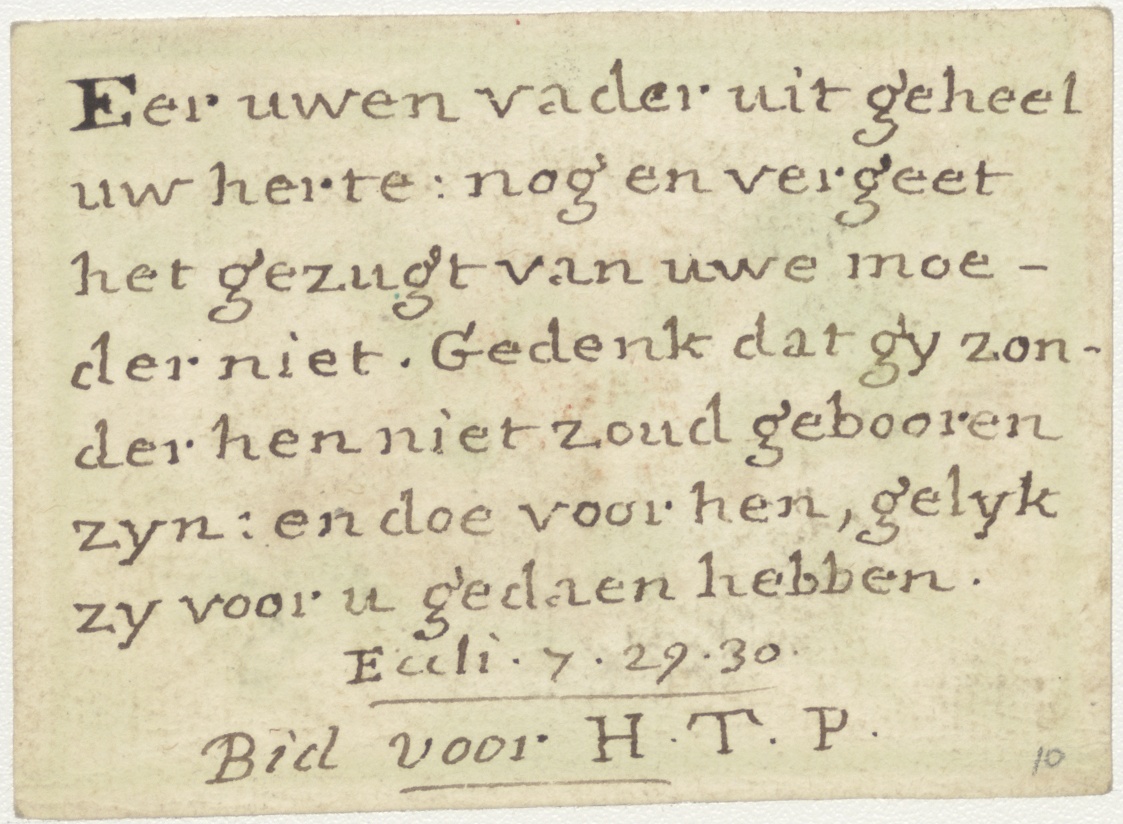 Eer uwen vader uit geheel
uw herte : nog en vergeet
het gezugt van uwe moe -
der niet . Gedenk dat gy zon-
der hen niet zoud gebooren
zyn : en doe voor hen, gelyk
zy voor u gedaen hebben .
Eccli . 7 . 29 . 30 .
Bid voor H . T . P .
10